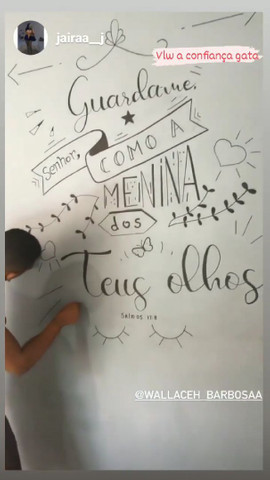 jairaa__j
Vlw a confiança gata
Guardame,
Senhor,
COMO A
MENINA
dos
Teus olhos
Salmos 17:8
@WALLACEH_BARBOSAA